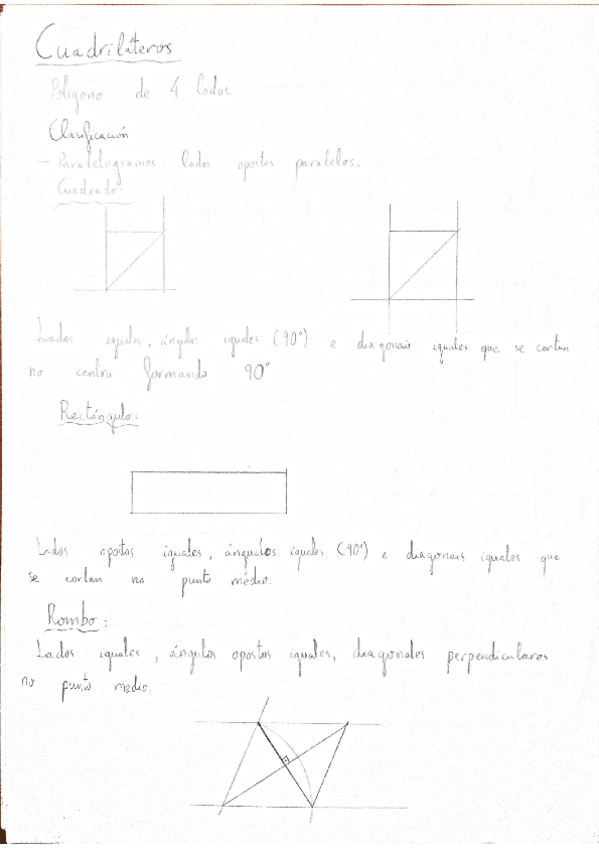 Cuadriláteros
Polígono de 4 lados.
Clasificación
- Paralelogramos: lados opostos paralelos.
Cuadrado:
Lados iguales, ángulos iguales (90°) e diagonais iguales que se cortan
no centro formando 90°
Rectángulo:
Lados opostos iguales, ángulos iguales (90°) e diagonais iguales que
se cortan no punto medio.
Rombo:
Lados iguales, ángulos opostos iguales, diagonales perpendiculares
no punto medio.